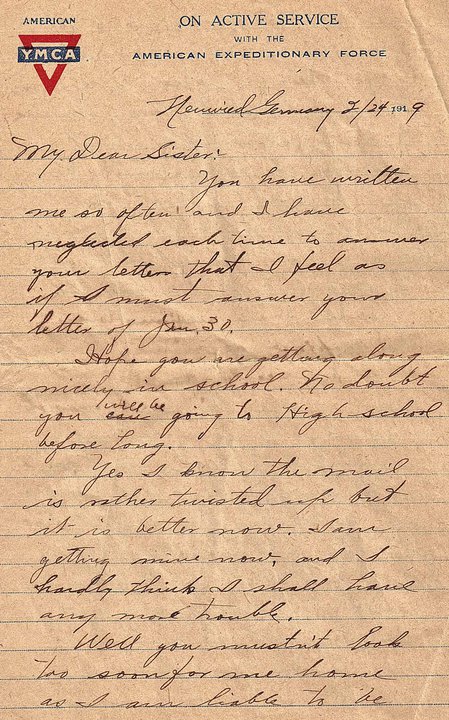 AMERICAN
YMCA
ON ACTIVE SERVICE
WITH THE
AMERICAN EXPEDITIONARY FORCE
Neuwied Germany 2/24 1919
My Dear Sister:
You have written
me so often and I have
neglected each time to answer
your letters that I feel as
if I must answer your
letter of Jan. 30.
Hope you are getting along
nicely in school. No doubt
you will be going to High school
before long.
Yes I know the mail
is rather twisted up but
it is better now. I am
getting mine now, and I
hardly think I shall have
any more trouble.
Well you mustn't look
too soon for me home
as I am liable to be